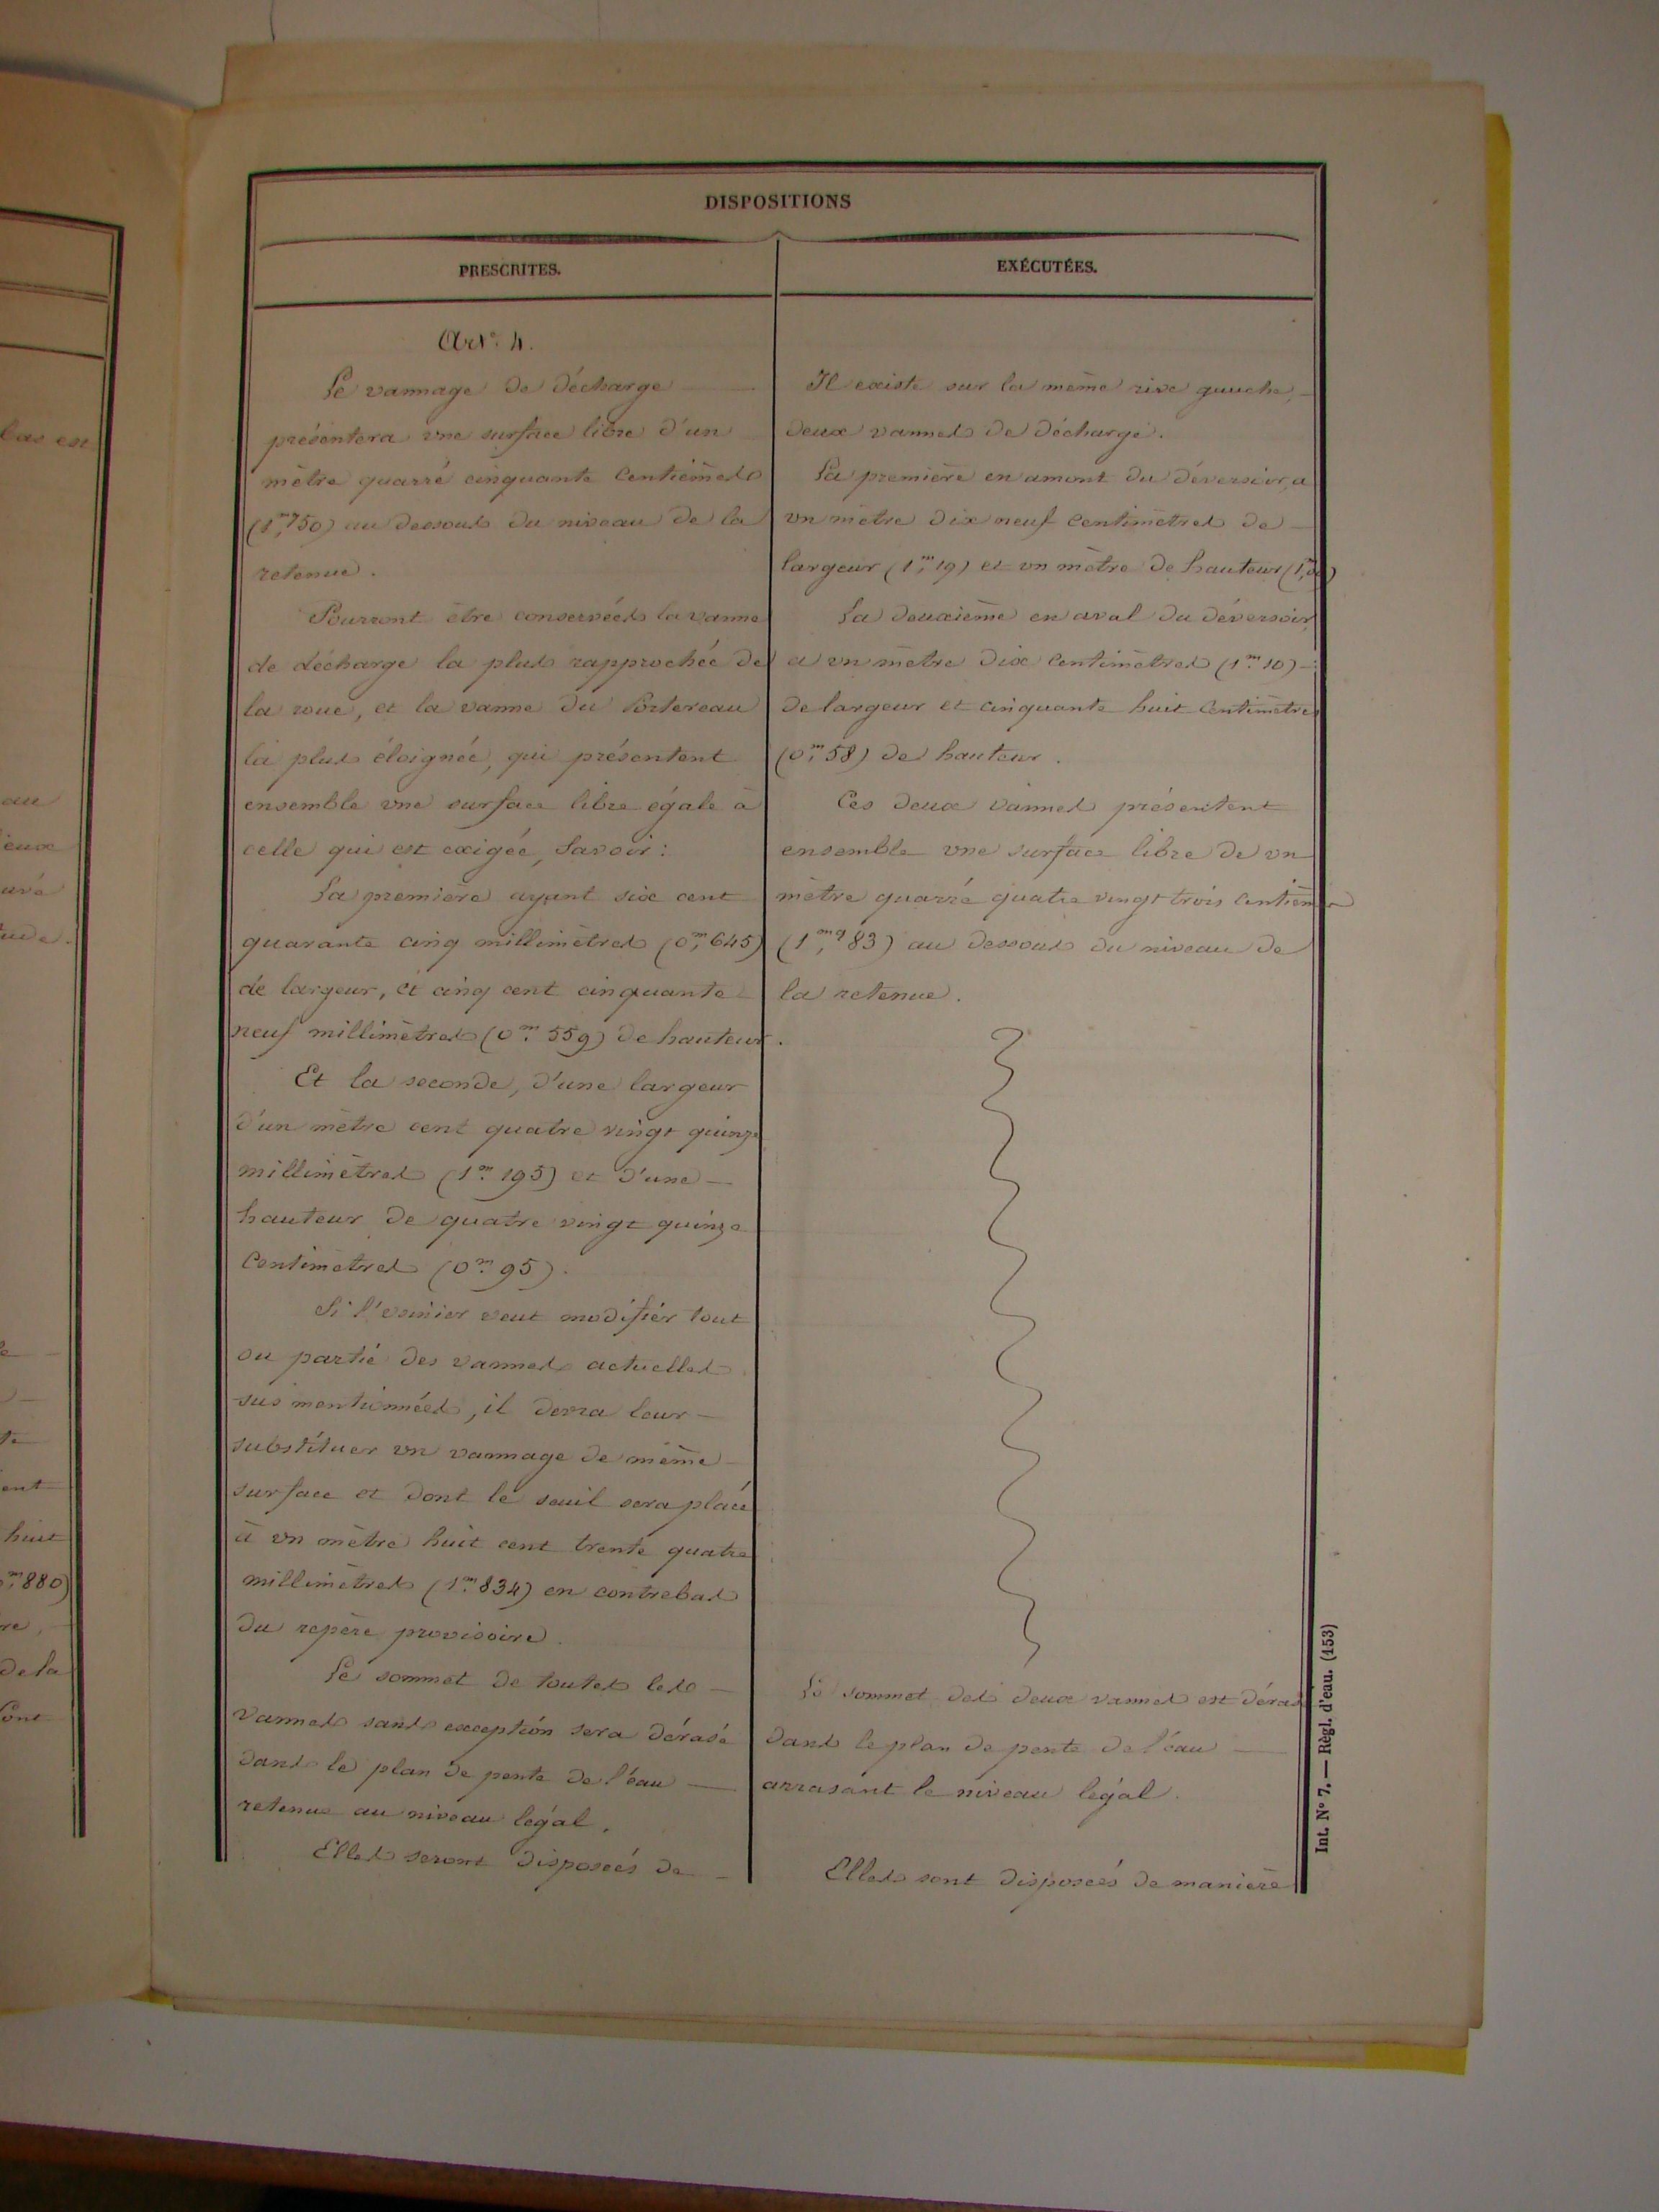 DISPOSITIONS
PRESCRITES.
Art. 4.
Le vannage de décharge
présentera une surface libre d'un
mètre quarré cinquante Centièmes
(1,mq50) au dessous du niveau de la
retenue.
Pourront être conservées la vanne
de décharge la plus rapprochée de
la roue, et la vanne du Portereau
la plus éloignée, qui présentent
ensemble une surface libre égale à
celle qui est exigée, Savoir :
La première ayant six cent
quarante cinq millimètres (0,m645)
de largeur, et cinq cent cinquante
neuf millimètres (0.m559) de hauteur.
Et la seconde, d'une largeur
d'un mètre cent quatre vingt quinze
millimètres (1.m195) et d'une
hauteur de quatre vingt quinze
Centimètres (0.m95).
Si l'usinier veut modifier tout
ou partie des vannes actuelles
sus mentionnées, il devra leur
substituer un vannage de même
surface et dont le seuil sera placé
à un mètre huit cent trente quatre
millimètres (1.m834) en contrebas
du repère provisoire.
Le sommet de toutes les
vannes sans exception sera dérasé
dans le plan de pente de l'eau
retenue au niveau légal.
Elles seront disposées de
EXÉCUTÉES.
Il existe sur la même rive gauche,
deux vannes de décharge.
La première en amont du déversoir, a
un mètre dix neuf centimètres de
largeur (1,m19) et un mètre de hauteur (1,m00)
La deuxième en aval du déversoir,
a un mètre dix centimètres (1.m10)
de largeur et cinquante huit Centimètres
(0,m58) de hauteur.
Ces deux vannes présentent
ensemble une surface libre de un
mètre quarré quatre vingt trois Centièmes
(1,mq83) au dessous du niveau de
la retenue.
Le sommet des deux vannes est dérasé
dans le plan de pente de l'eau
arrasant le niveau légal.
Elles sont disposées de manière
Int. N° 7. — Règl. d'eau. (153)
bas est
au
avé
ent
huit
m880)
de la